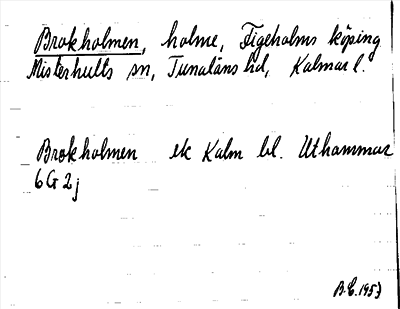 Brokholmen, holme, Figeholms köping
Misterhults sn, Tunaläns hd, Kalmar l.
Brokholmen ek Kalm bl. Uthammar
6G 2j
B.E. 1953